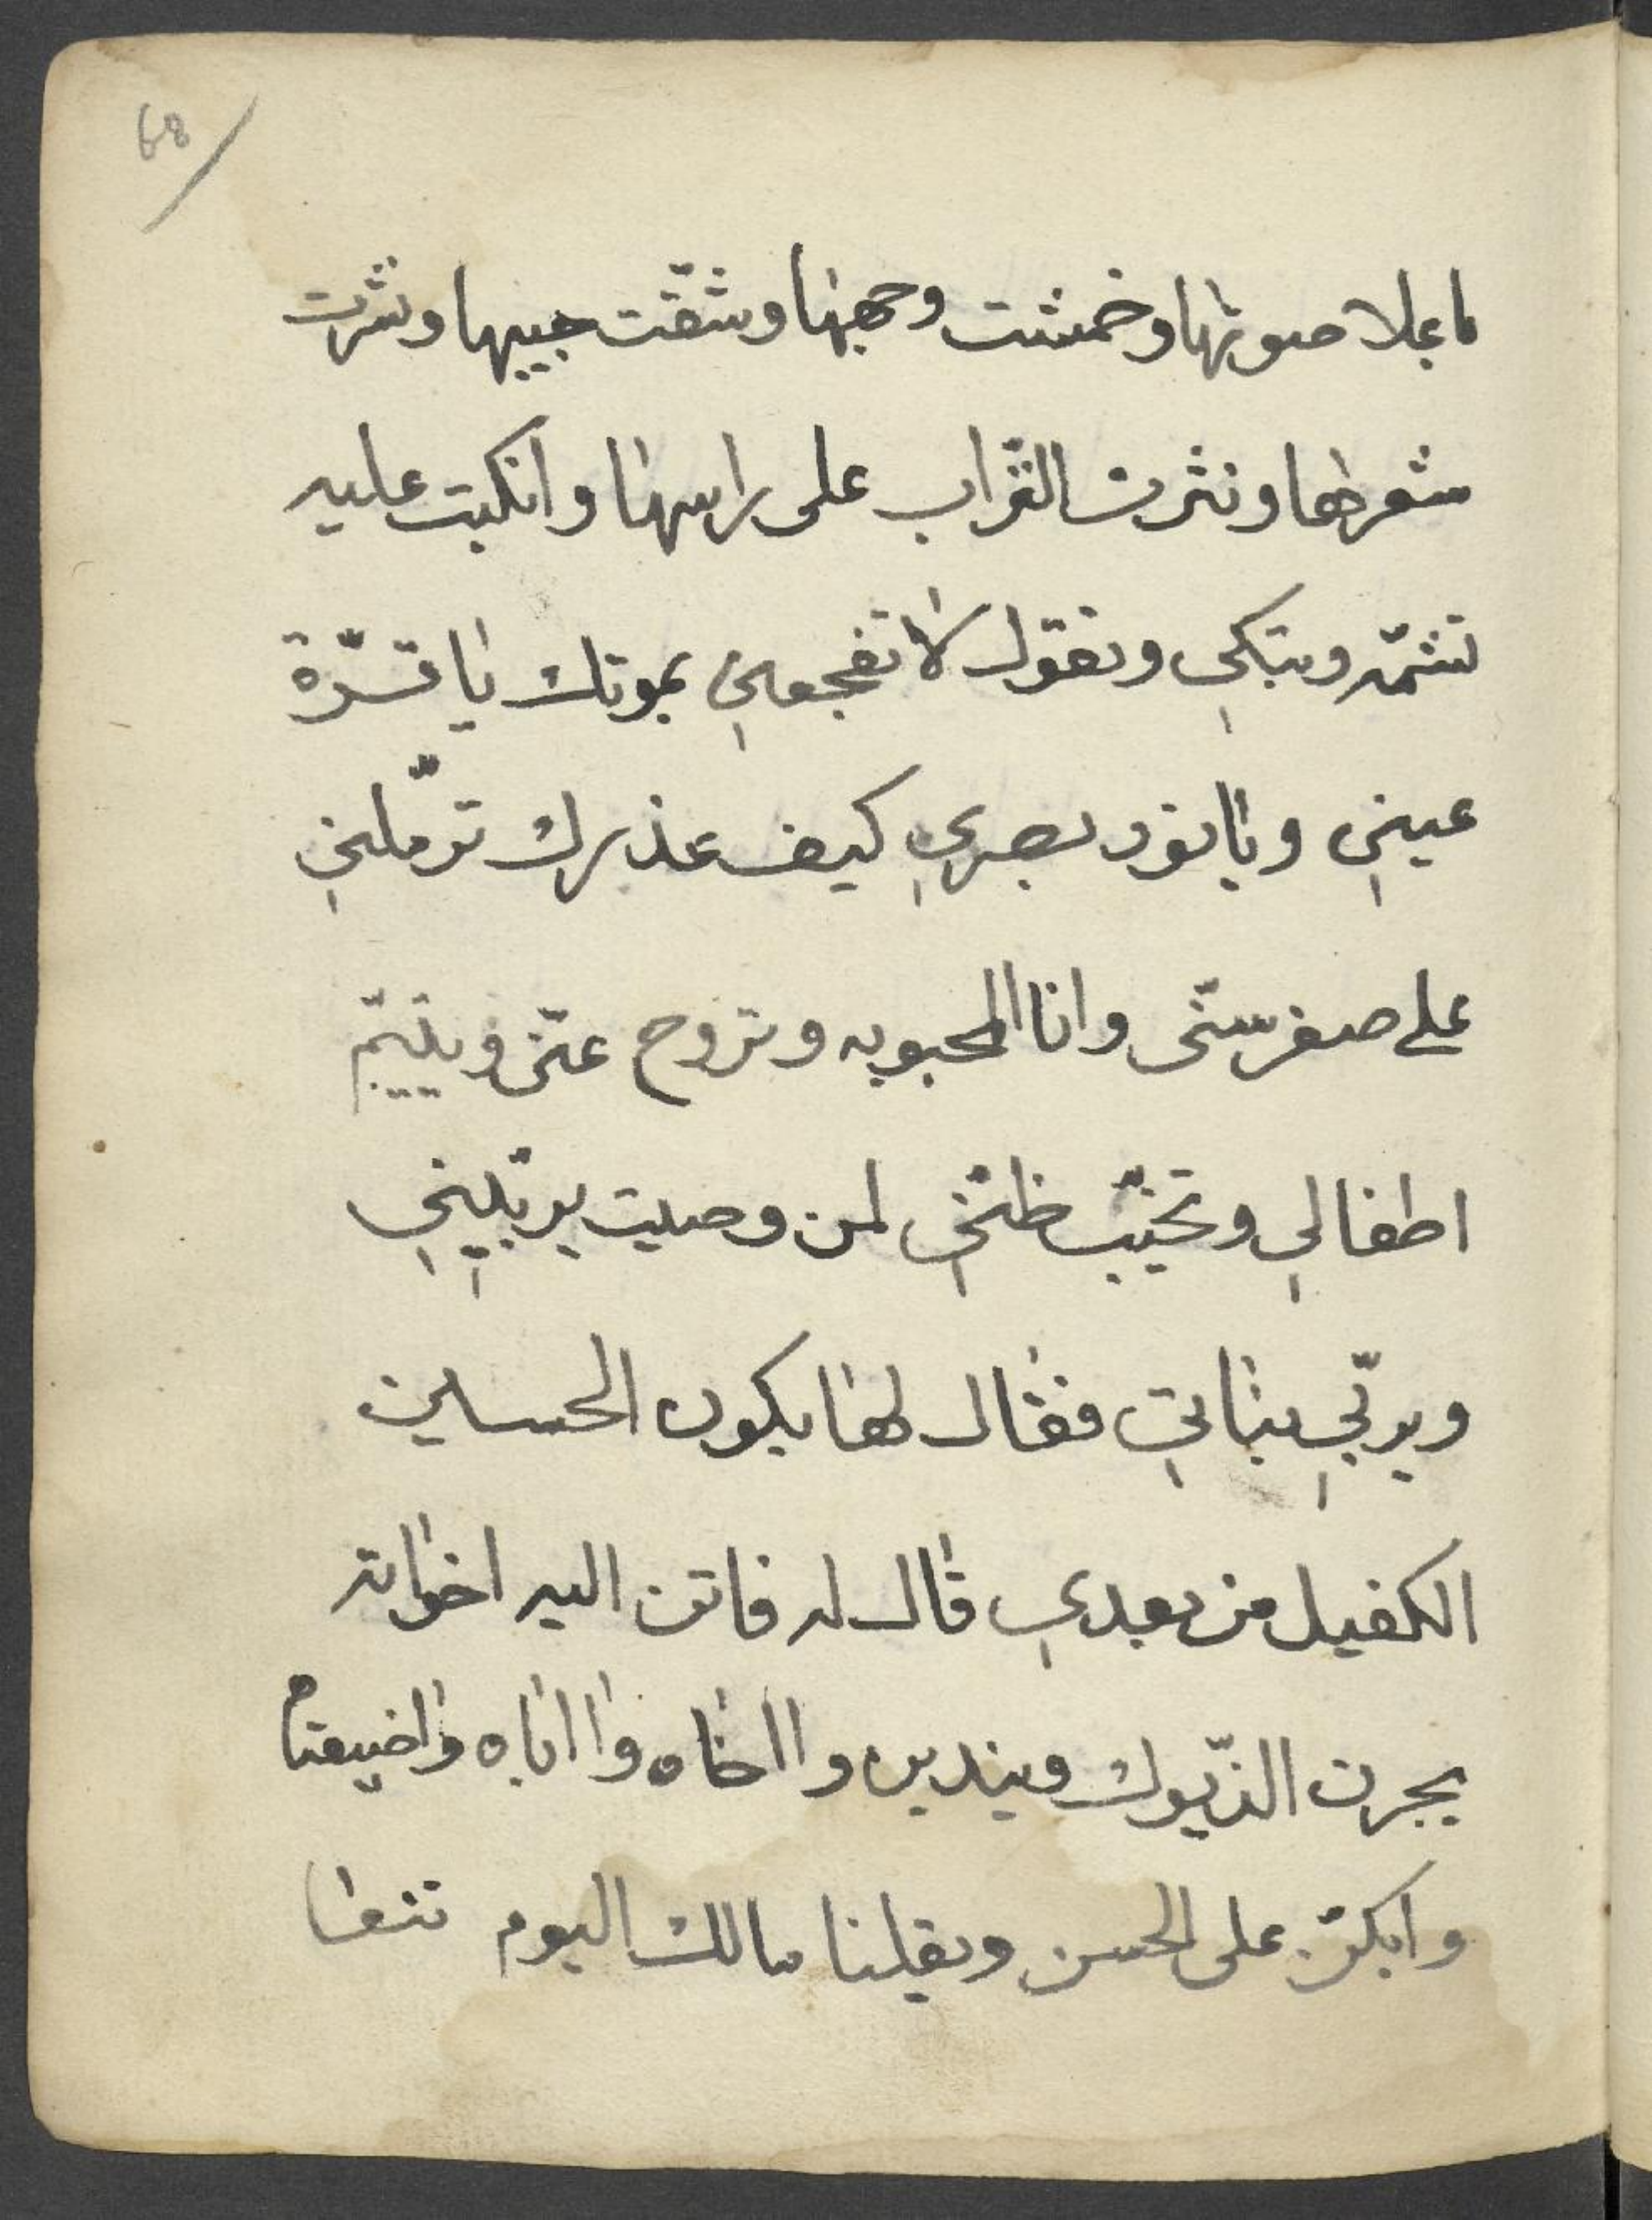 68
باعلا صوتها وخمشت وجهها وشقّت جيبها ونشرت
شعرها ونثرت التّراب على راسها وانكبت عليه
تشمّه وتبكي وتقول لا تفجعني بموتك يا قرّة
عيني ويا نور بصري كيف عذرك ترمّلني
على صغر سنّي وانا المحبوبه وتروح عنّي وتيتم
اطفالي وتخيّب ظنّي لمن وصيت يربّيني
ويربّي بناتي فقال لها يكون الحسين
الكفيل من بعدي قال له فاتن اليه اخواته
يجرن الذّيول ويندبن وا اخاه وا اباه واضيعتاه
وابكنّ على الحسن ويقلنا مالك اليوم